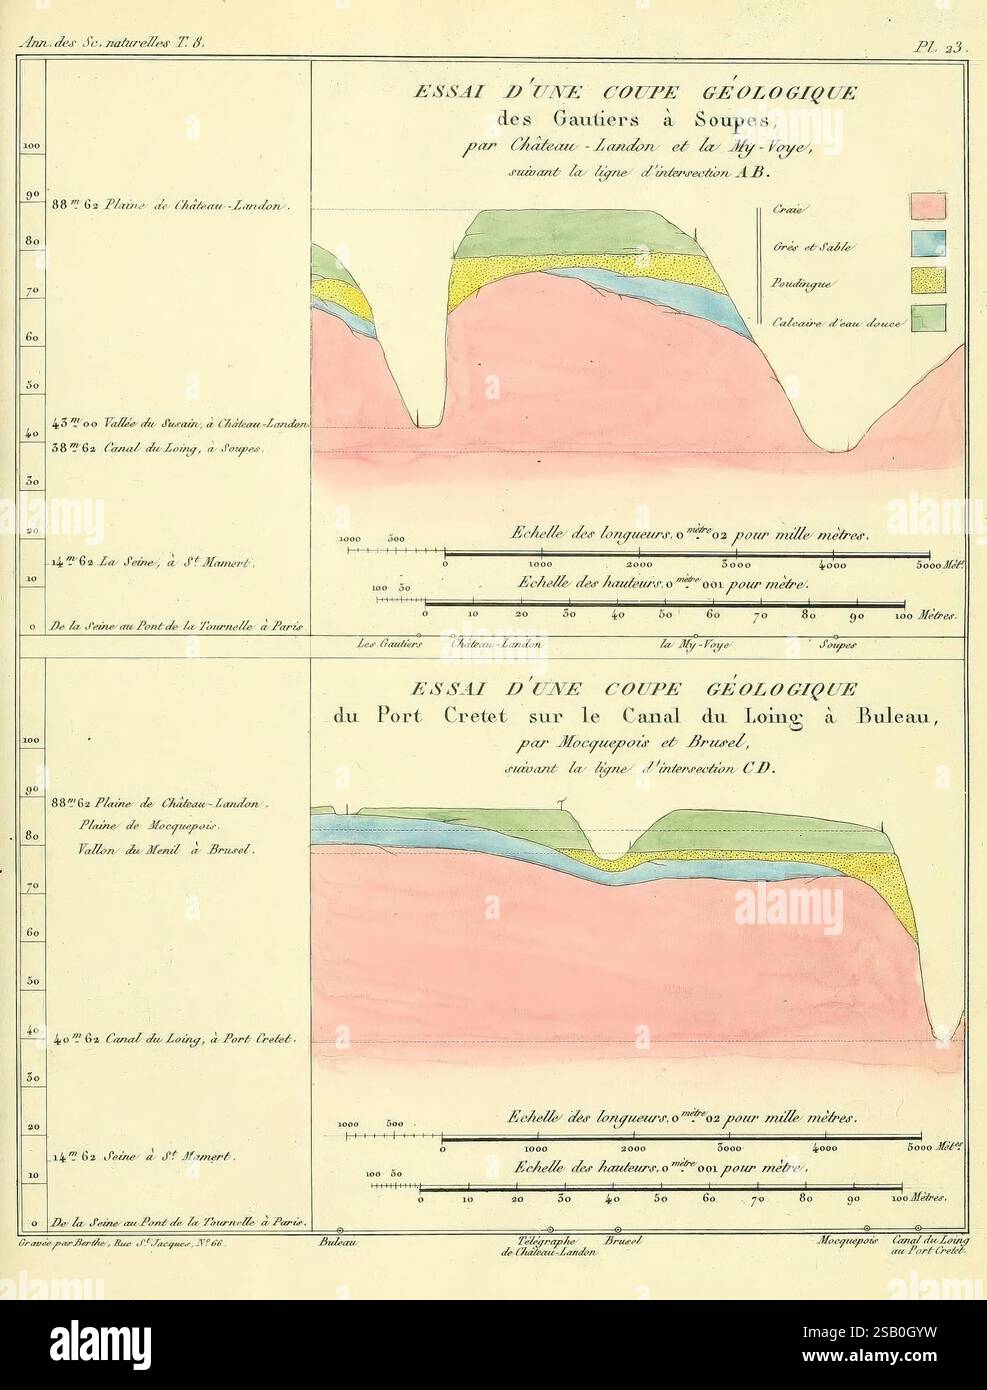 Ann. des Sc. naturelles T. 8.
Pl. 23.
ESSAI D'UNE COUPE GÉOLOGIQUE
des Gautiers à Soupes,
par Château-Landon et la My-Voye,
suivant la ligne d'intersection AB.
100
90
88m 62 Plaine de Château-Landon.
80
70
60
50
43m 00 Vallée du Susain, à Château-Landon
40
38m 62 Canal du Loing, à Soupes.
30
20
14m 62 La Seine, à St Mamert.
10
0 De la Seine au Pont de la Tournelle à Paris.
Craie
Grès et Sable
Poudingue
Calcaire d'eau douce
Echelle des longueurs. 0 mètre 02 pour mille mètres.
1000 500
0 1000 2000 3000 4000 5000 Mèt.
Echelle des hauteurs. 0 mètre 001 pour mètre.
100 50
0 10 20 30 40 50 60 70 80 90 100 Mètres.
Les Gautiers Château-Landon la My-Voye Soupes
ESSAI D'UNE COUPE GÉOLOGIQUE
du Port Cretet sur le Canal du Loing à Buleau,
par Mocquepois et Brusel,
suivant la ligne d'intersection CD.
100
90
88m 62 Plaine de Château-Landon.
Plaine de Mocquepois.
80
Vallon du Menil à Brusel.
70
60
50
40
40m 62 Canal du Loing, à Port Cretet.
30
20
14m 62 Seine à St Mamert.
10
0 De la Seine au Pont de la Tournelle à Paris.
Echelle des longueurs. 0 mètre 02 pour mille mètres.
1000 500
0 1000 2000 3000 4000 5000 Mèt.es
Echelle des hauteurs. 0 mètre 001 pour mètre.
100 50
0 10 20 30 40 50 60 70 80 90 100 Mètres.
Gravée par Berthe, Rue St Jacques, No 66.
Buleau
Télégraphe
de Château-Landon
Brusel
Mocquepois
Canal du Loing
au Port Cretet.
alamy
alamy
Image ID: 2SB0GYW
www.alamy.com